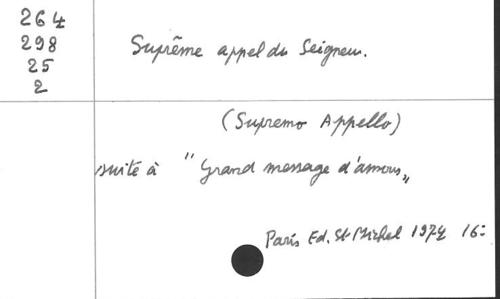 264
298
25
2
Suprême appel du Seigneur.
(Supremo Appello)
suite à "Grand message d'amour"
Paris Ed. St Michel 1974 16: